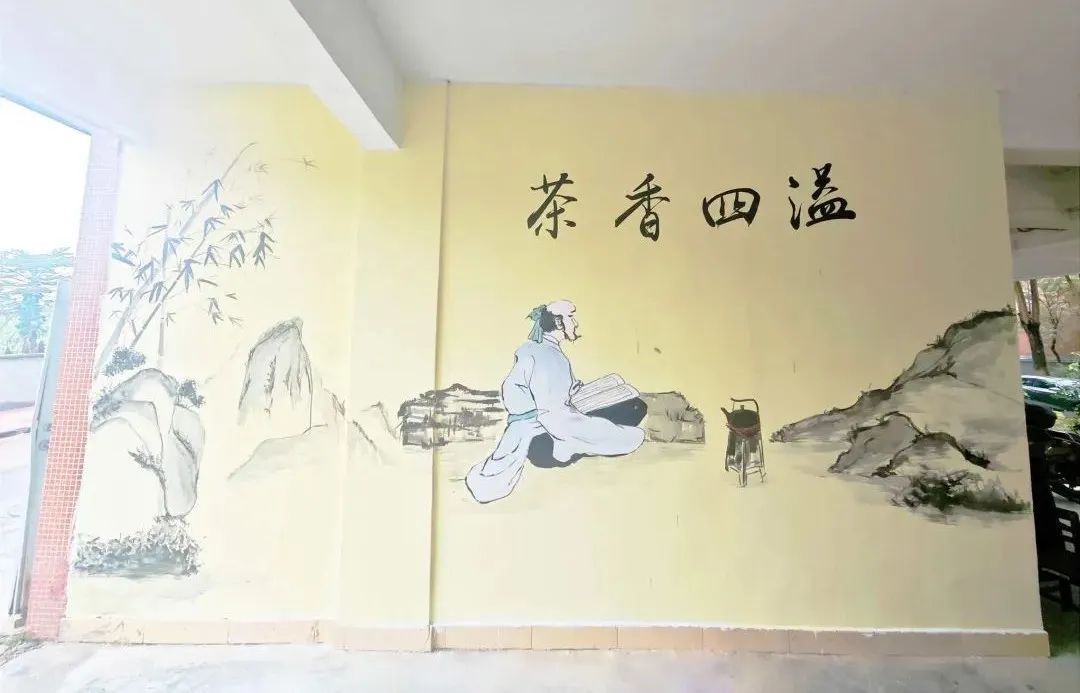 茶香四溢